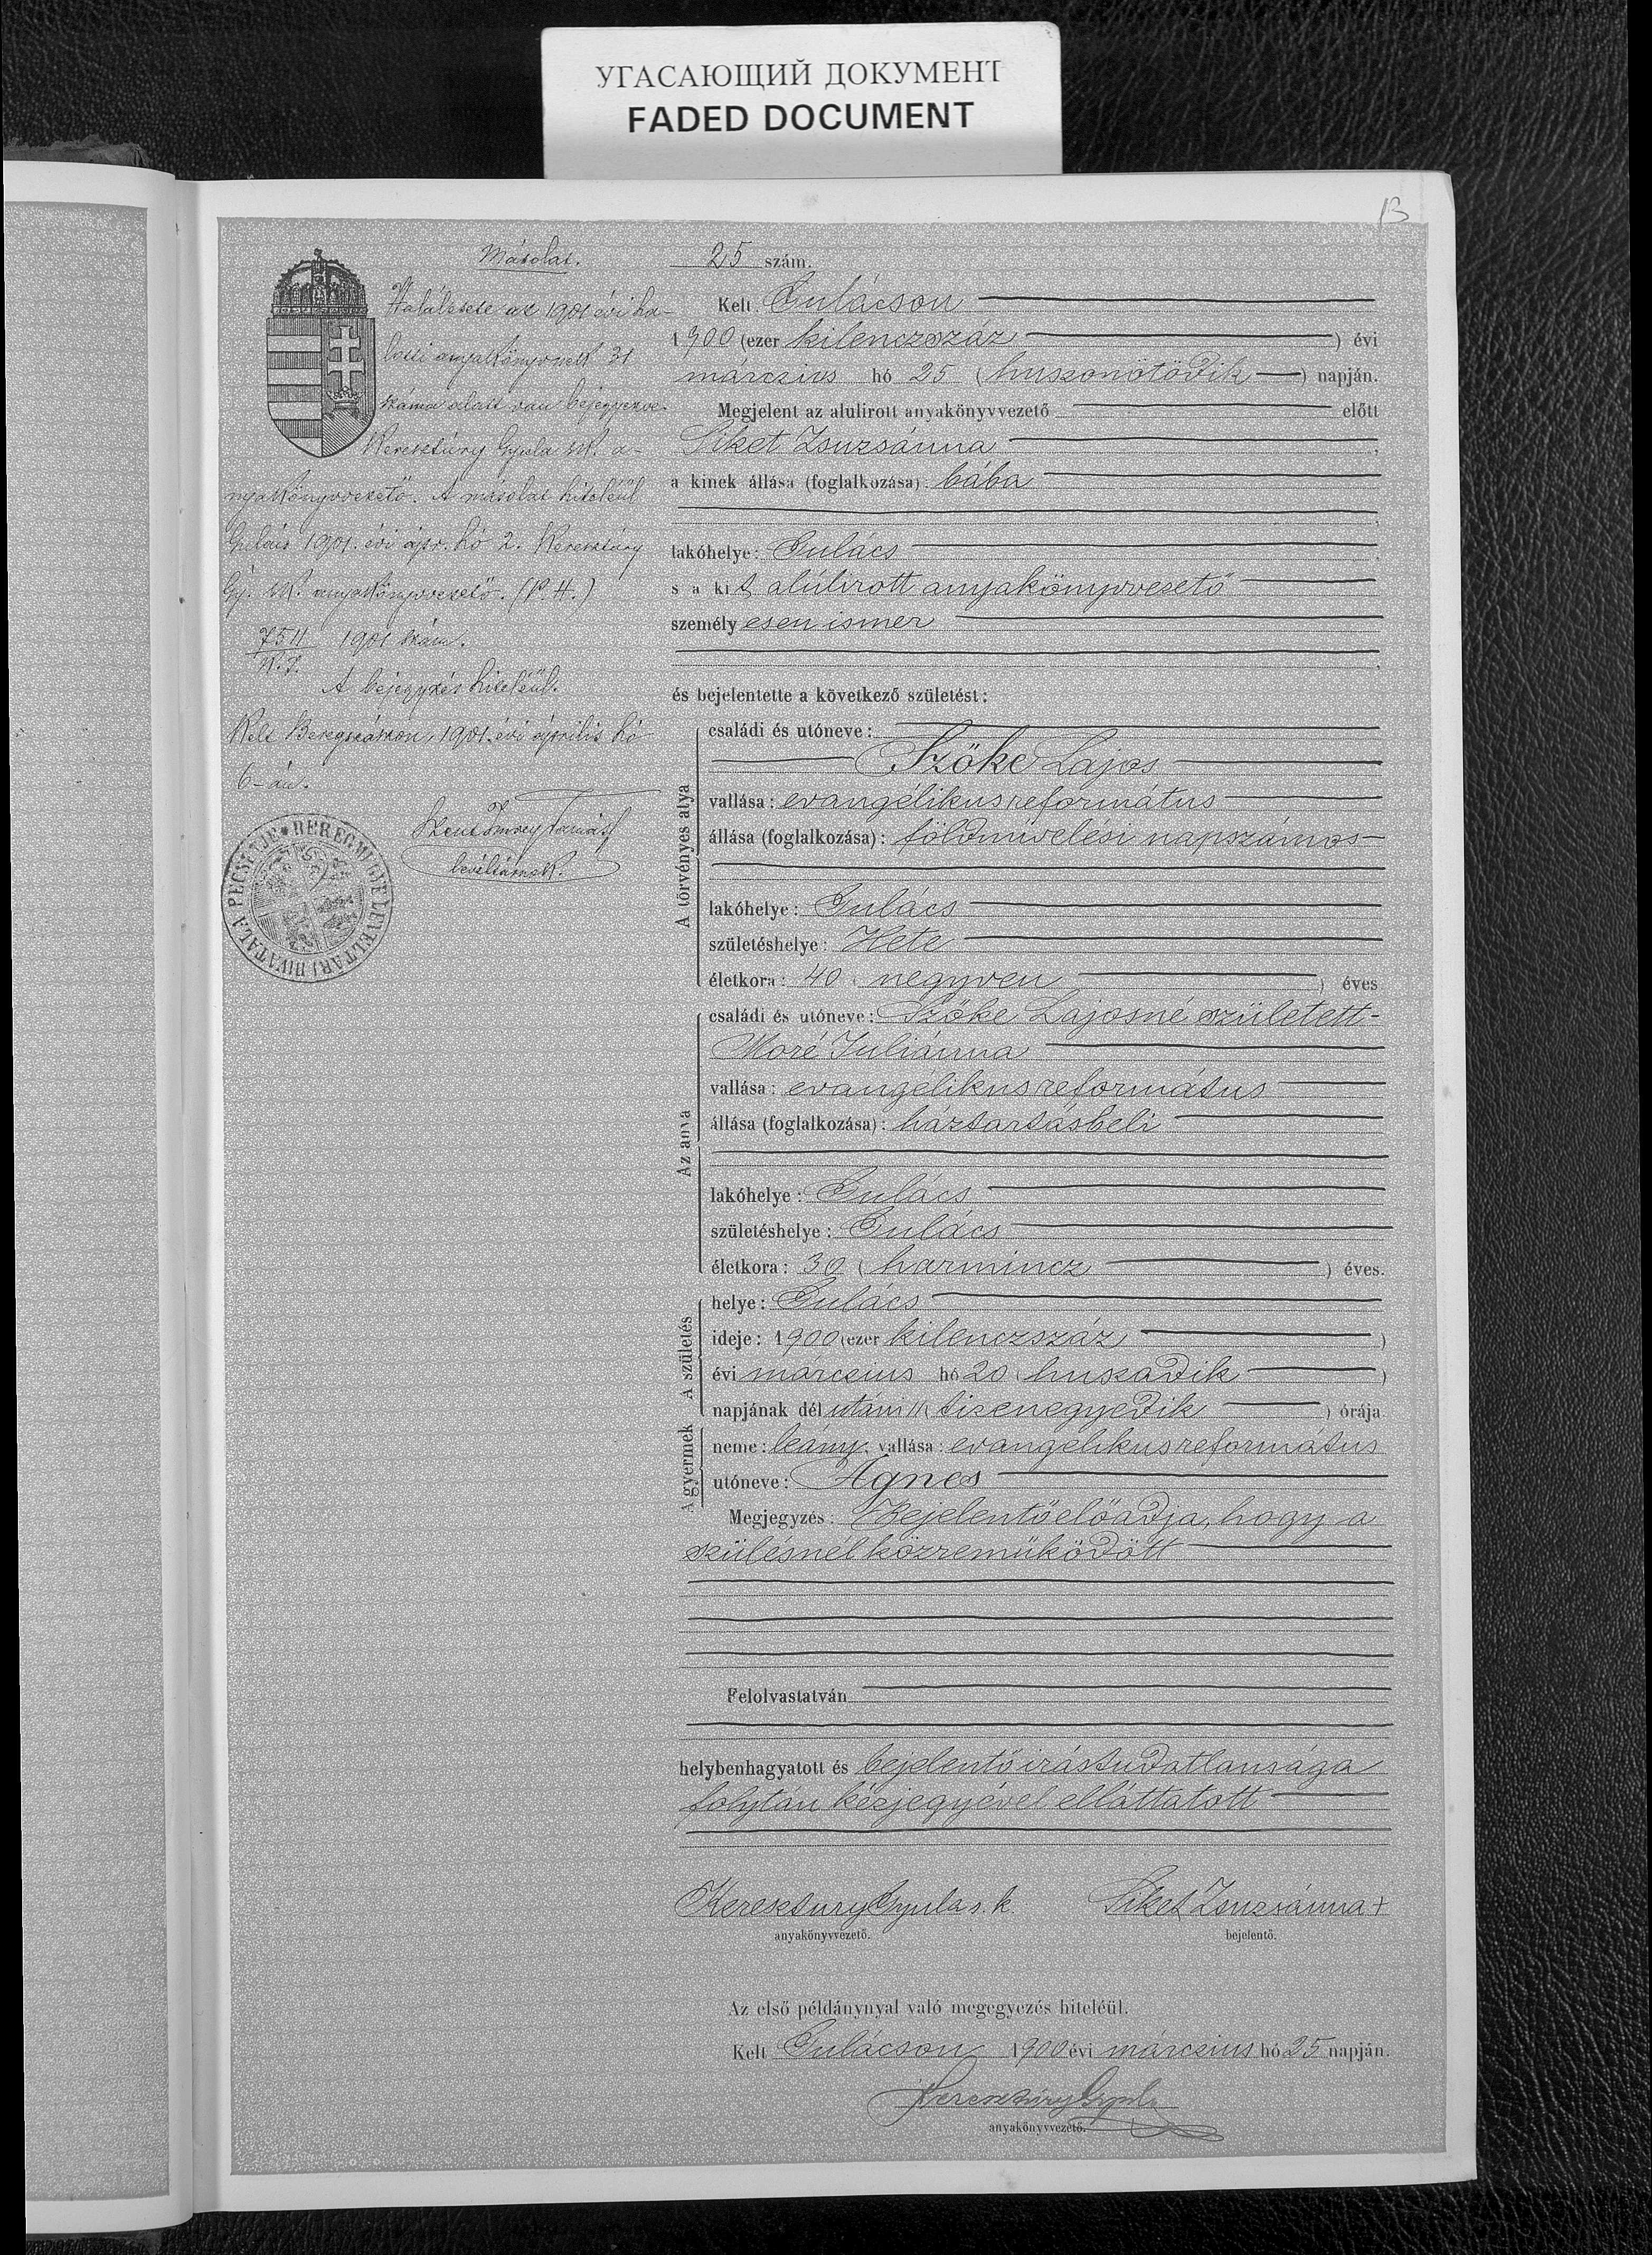 УГАСАЮЩИЙ ДОКУМЕНТ
FADED DOCUMENT
13
Másolat.
Halálesete az 1901 évi ha-
lotti anyakönyvnek 31
száma alatt van bejegyezve.
Keresztúry Gyula sk. a-
nyakönyvvezető. A másolat hiteléül
Gulács 1901. évi ápr. hó 2. Keresztúry
Gy. sk. anyakönyvvezető. (P. H.)
7511 1901 szám.
A bejegyzés hiteléül.
Kelt Beregszászon, 1901. évi április hó
6-án.
Szent Imrey Tamás
levéltárnok.
BEREGMEGYE LEVÉLTÁRI HIVATALA PECSÉTJE
25 szám.
Kelt Gulácson
1900 (ezer kilenczszáz) évi
márczius hó 25 (huszonötödik) napján.
Megjelent az alulirott anyakönyvvezető előtt
Siket Zsuzsánna
a kinek állása (foglalkozása): bába
lakóhelye: Gulács
s a kit alúlirott anyakönyvvezető
személyesen ismer
és bejelentette a következő születést:
A törvényes atya
családi és utóneve:
Szőke Lajos
vallása: evangélikus református
állása (foglalkozása): földmivelési napszámos
lakóhelye: Gulács
születéshelye: Hete
életkora: 40 (negyven) éves
Az anya
családi és utóneve: Szőke Lajosné született
Moré Juliánna
vallása: evangélikus református
állása (foglalkozása): háztartásbeli
lakóhelye: Gulács
születéshelye: Gulács
életkora: 30 (harmincz) éves.
A születés
helye: Gulács
ideje: 1900 (ezer kilenczszáz)
évi márczius hó 20 (huszadik)
napjának dél utáni 11 (tizenegyedik) órája
A gyermek
neme: leány. vallása: evangelikus református
utóneve: Ágnes
Megjegyzés: Bejelentő előadja, hogy a
szülésnél közreműködött
Felolvastatván
helybenhagyatott és bejelentő irástudatlansága
folytán kézjegyével elláttatott
Keresztury Gyula s. k. Siket Zsuzsánna +
anyakönyvvezető. bejelentő.
Az első példánynyal való megegyezés hiteléül.
Kelt Gulácson 1900 évi márczius hó 25 napján.
Keresztúry Gyula
anyakönyvvezető.